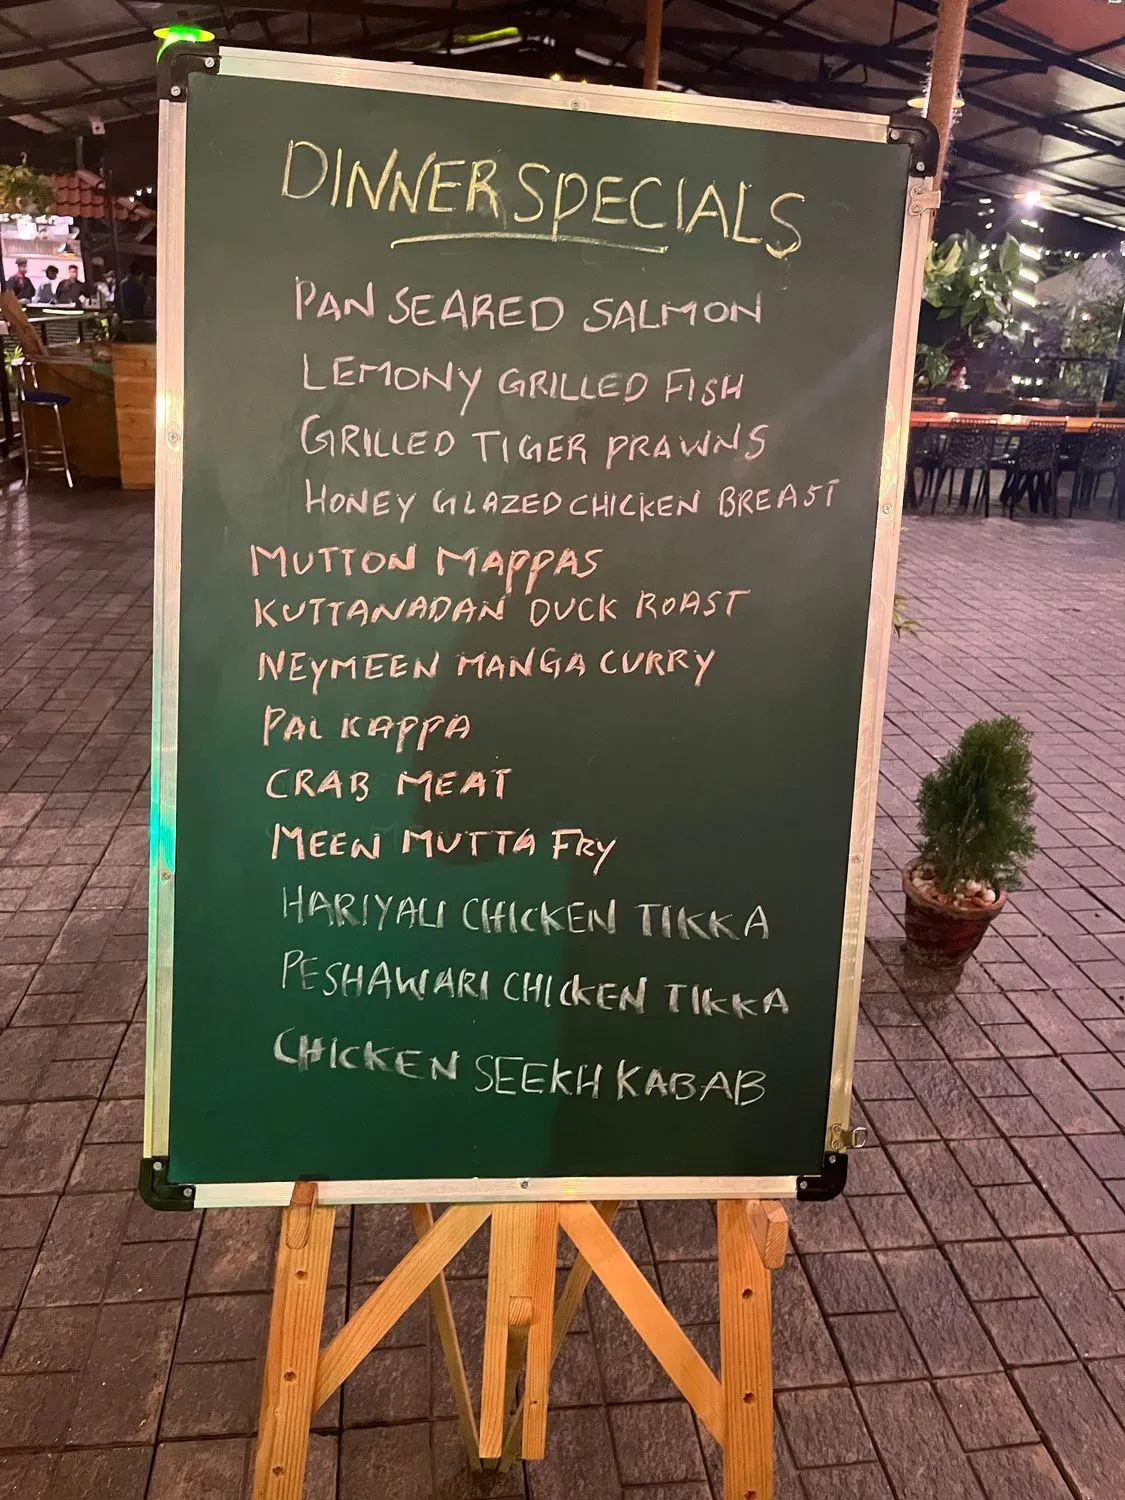 DINNER SPECIALS
PAN SEARED SALMON
LEMONY GRILLED FISH
GRILLED TIGER PRAWNS
HONEY GLAZED CHICKEN BREAST
MUTTON MAPPAS
KUTTANADAN DUCK ROAST
NEYMEEN MANGA CURRY
PAL KAPPA
CRAB MEAT
MEEN MUTTA FRY
HARIYALI CHICKEN TIKKA
PESHAWARI CHICKEN TIKKA
CHICKEN SEEKH KABAB